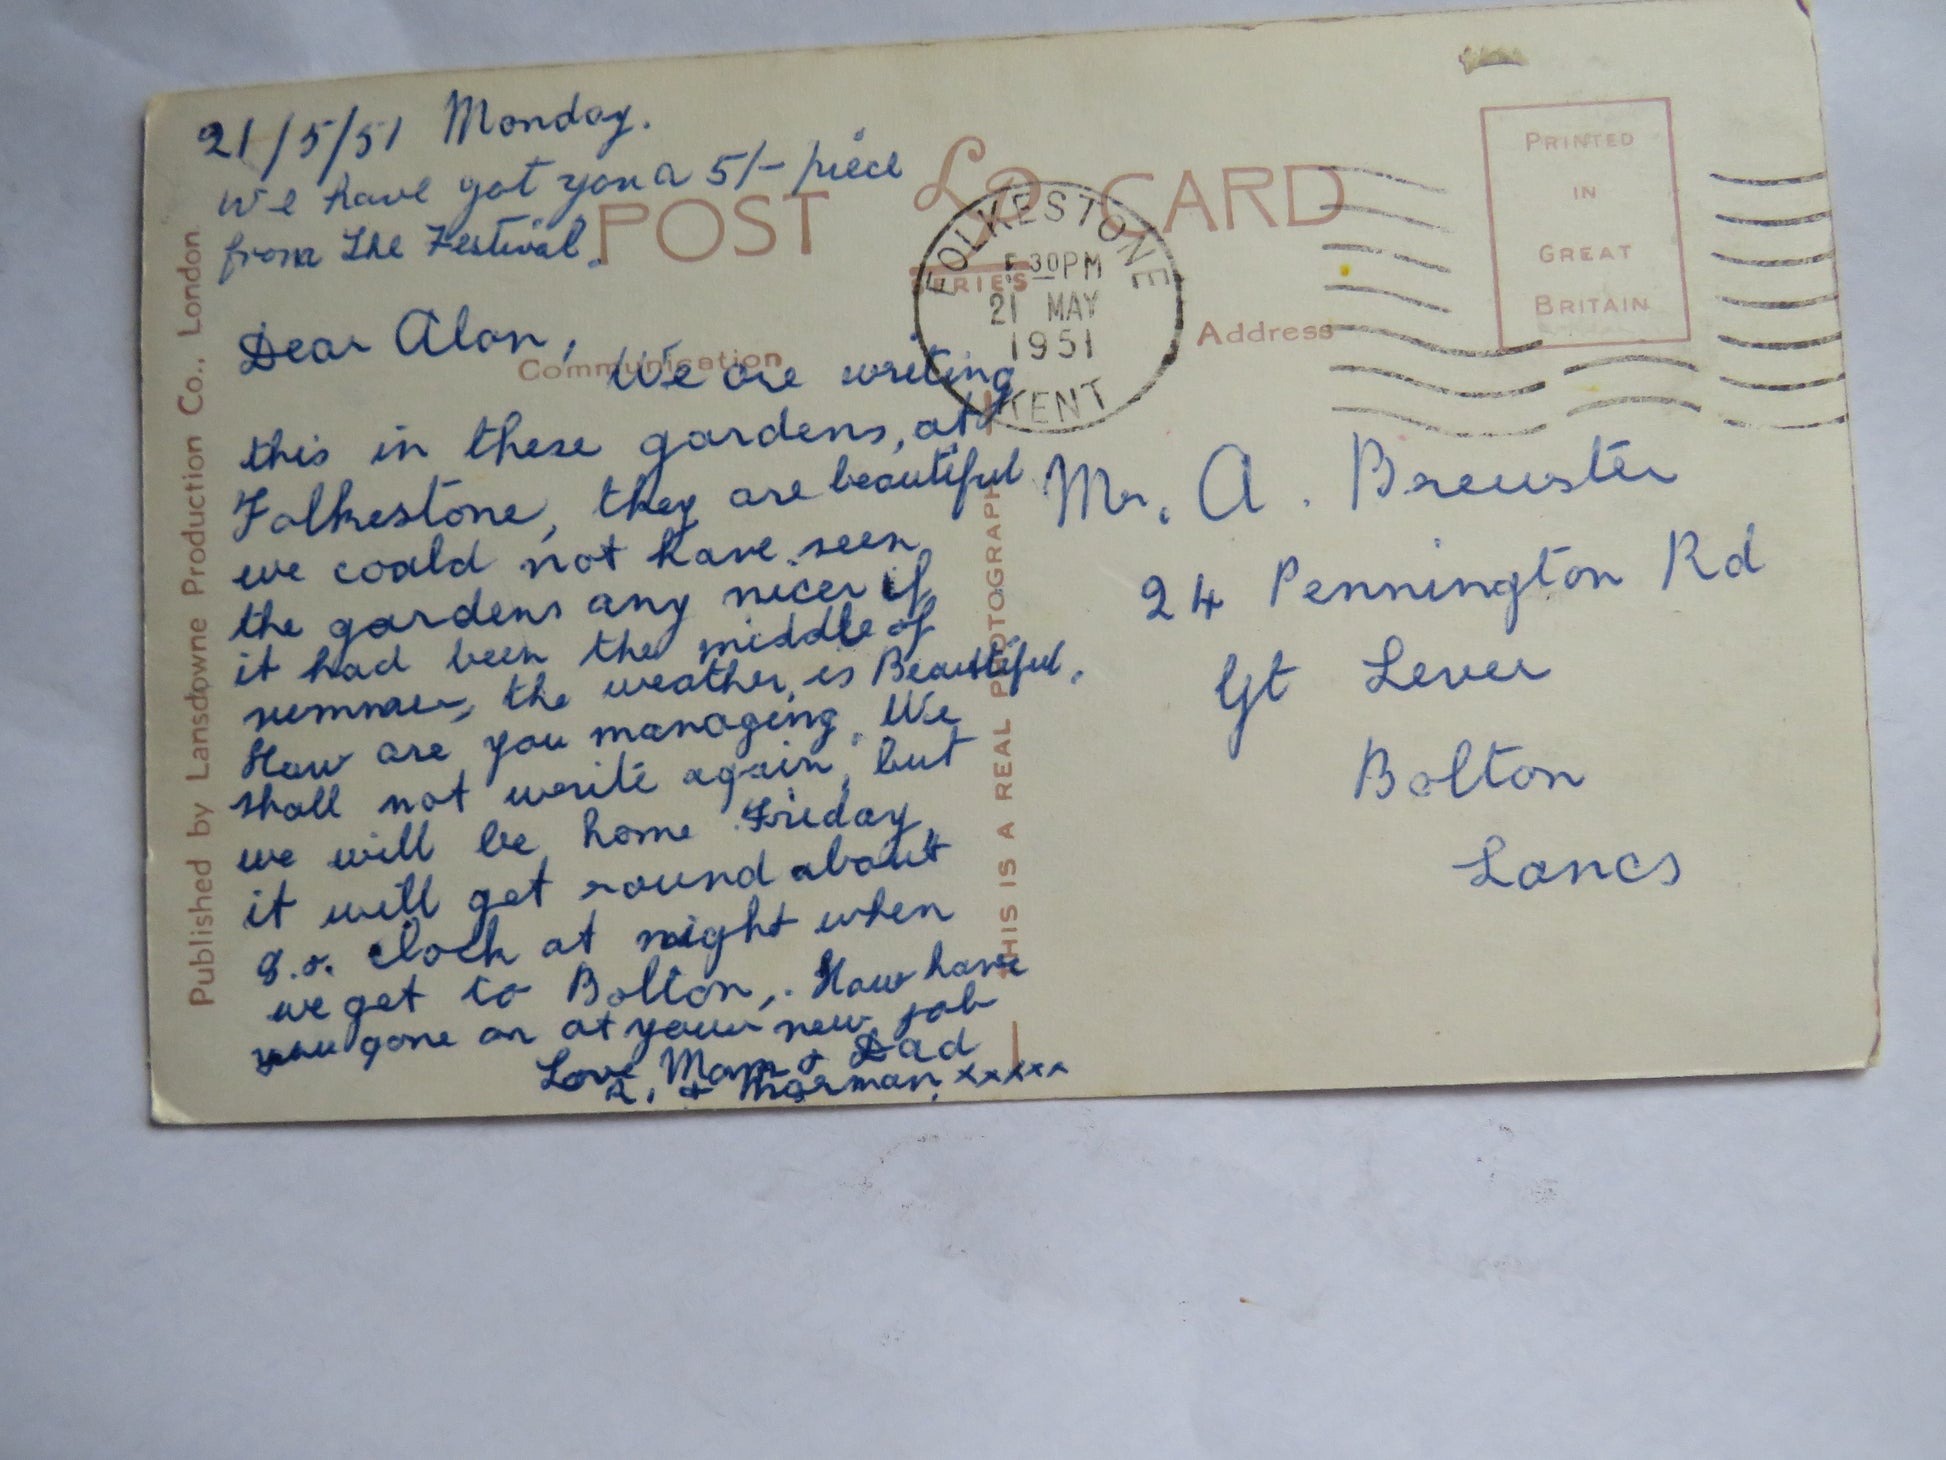 21/5/51 Monday.
We have got you a 5/- piece
from The Festival.
POST CARD
LD
SERIES
FOLKESTONE
30PM
21 MAY
1951
KENT
PRINTED
IN
GREAT
BRITAIN
Communication
Address
Dear Alan,
We are writing
this in these gardens, at
Folkestone, they are beautiful
we could not have seen
the gardens any nicer if
it had been the middle of
summer, the weather is Beautiful.
How are you managing. We
shall not write again, but
we will be home Friday
it will get round about
8.o. clock at night when
we get to Bolton,. How have
you gone on at your new job
Love Mam & Dad
R. & Norman. xxxxx
Mr. A. Brewster
24 Pennington Rd
Gt Lever
Bolton
Lancs
Published by Lansdowne Production Co., London.
THIS IS A REAL PHOTOGRAPH